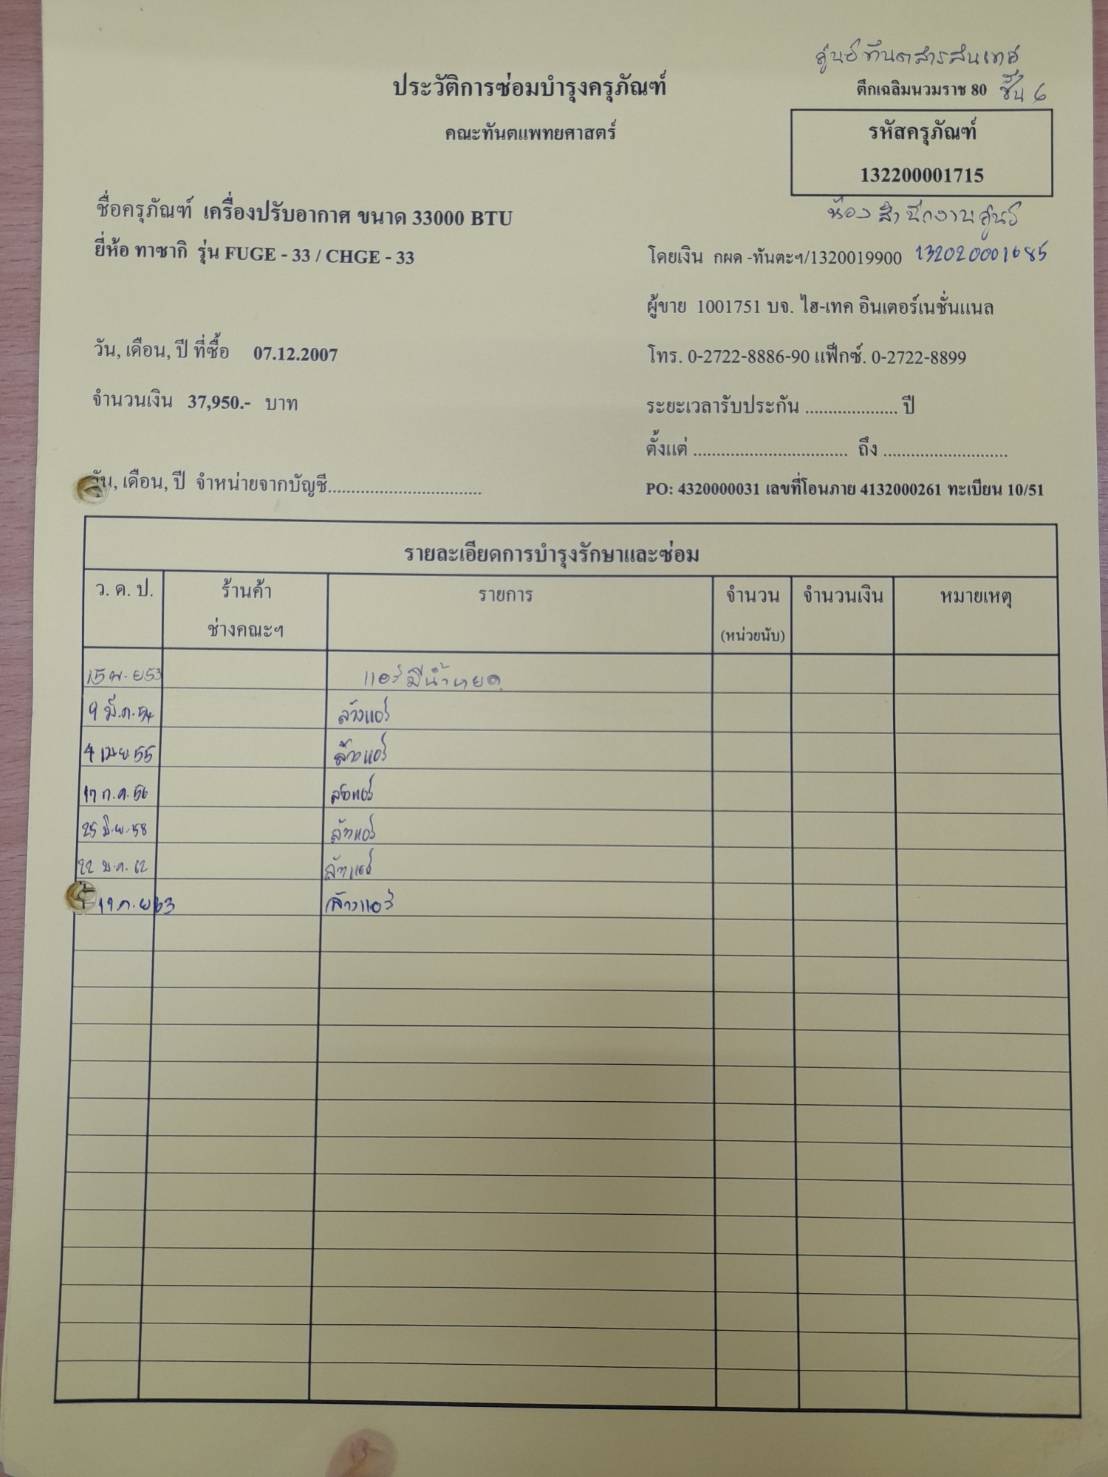 ศูนย์ทันตสารสนเทศ
ประวัติการซ่อมบำรุงครุภัณฑ์
ตึกเฉลิมนวมราช 80 ชั้น 6
คณะทันตแพทยศาสตร์
รหัสครุภัณฑ์
132200001715
ชื่อครุภัณฑ์ เครื่องปรับอากาศ ขนาด 33000 BTU
ห้อง สำนักงานศูนย์
ยี่ห้อ ทาซากิ รุ่น FUGE - 33 / CHGE - 33
โดยเงิน กผด -ทันตะฯ/1320019900 132020001685
ผู้ขาย 1001751 บจ. ไฮ-เทค อินเตอร์เนชั่นแนล
วัน, เดือน, ปี ที่ซื้อ 07.12.2007
โทร. 0-2722-8886-90 แฟ็กซ์. 0-2722-8899
จำนวนเงิน 37,950.- บาท
ระยะเวลารับประกัน .................... ปี
ตั้งแต่ ................................. ถึง ...........................
วัน, เดือน, ปี จำหน่ายจากบัญชี.................................
PO: 4320000031 เลขที่โอนภาย 4132000261 ทะเบียน 10/51
รายละเอียดการบำรุงรักษาและซ่อม
ว. ด. ป. ร้านค้า รายการ จำนวน จำนวนเงิน หมายเหตุ
ช่างคณะฯ (หน่วยนับ)
แอร์มีน้ำหยด
9 มี.ค. 54 ล้างแอร์
4 เมย 55 ล้างแอร์
17 ก.ค. 56 ล้างแอร์
25 มิ.ย. 58 ล้างแอร์
22 ม.ค. 62 ล้างแอร์
ล้างแอร์